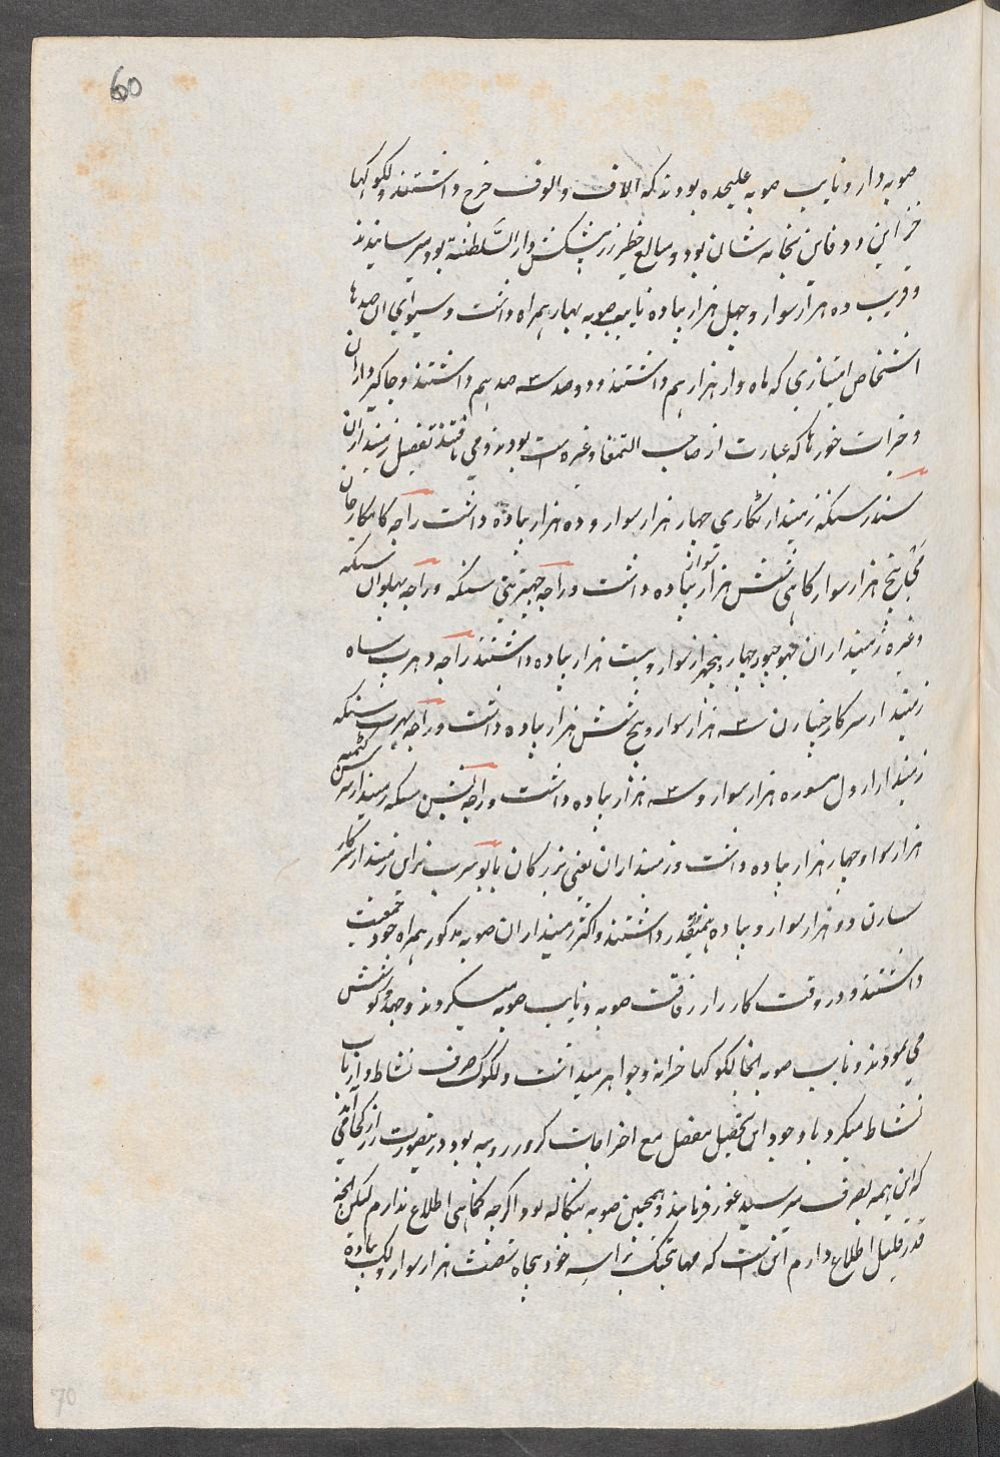 60
صوبه دار و نایب صوبه علیحده بودند که الاف و الوف خرج داشتند و لکوکها
خزاین و دفاین بخانه شان بود و مبالغ خطیر زر پیشکش دار السلطنة بود میرسانیدند
و قریب ده هزار سوار و چهل هزار پیاده نایب صوبه بهار همراه داشت و سیوای آن صدها
اشخاص امتیازی که ماه وار هزار هم داشتند و دو صد سه صد هم داشتند و جاگیرداران
و خیرات خورها که عبارت از صاحب التمغا و غیره است بودند و می یافتند تفصیل زمینداران
سندر سنگه زمیندار تکاری چهار هزار سوار و ده هزار پیاده داشت راجه کامکار خان
پنج هزار سوار کاهی شش هزار سوار پیاده داشت و راجه چهتر پتی سنگه و راجه پهلوان سنگه
وغیره زمینداران بهوجپور چهار پنجهزار سوار و بیست هزار پیاده داشتند راجه دهرب ساه
زمیندار سرکار چنپارن سه هزار سوار و پنج شش هزار پیاده داشت و راجه سنگه
زمیندار ارول هزار سوار و سه هزار پیاده داشت و راجه بشن سنگه زمیندار سرس کتمبه
هزار سوار و چهار هزار پیاده داشت و زمینداران یعنی بزرگان بابو نراین زمیندار سرکار
سارن دو هزار سوار و پیاده همینقدر داشتند و اکثر زمینداران صوبه مذکور همراه خود جمعیت
داشتند و در وقت کار زار رفاقت صوبه و نایب صوبه میکردند و جهد و کوشش
می نمودند و نایب صوبه انجا لکوکها خزانه و جواهر میداشت و لکوک صرف نشاط و ارباب
نشاط میکرد با وجود این تحصیل مفصل مع اخراجات کرور روپیه بود درینصورت زر از کجا می آمد
که این همه بصرف میرسید غور فرمایند و همچنین صوبه بنگاله بود اگرچه کماهی اطلاع ندارم لیکن انچه
قدر قلیل اطلاع دارم این است که مهابتجنگ براسه خود پنجاه شصت هزار سوار و لک پیاده
70